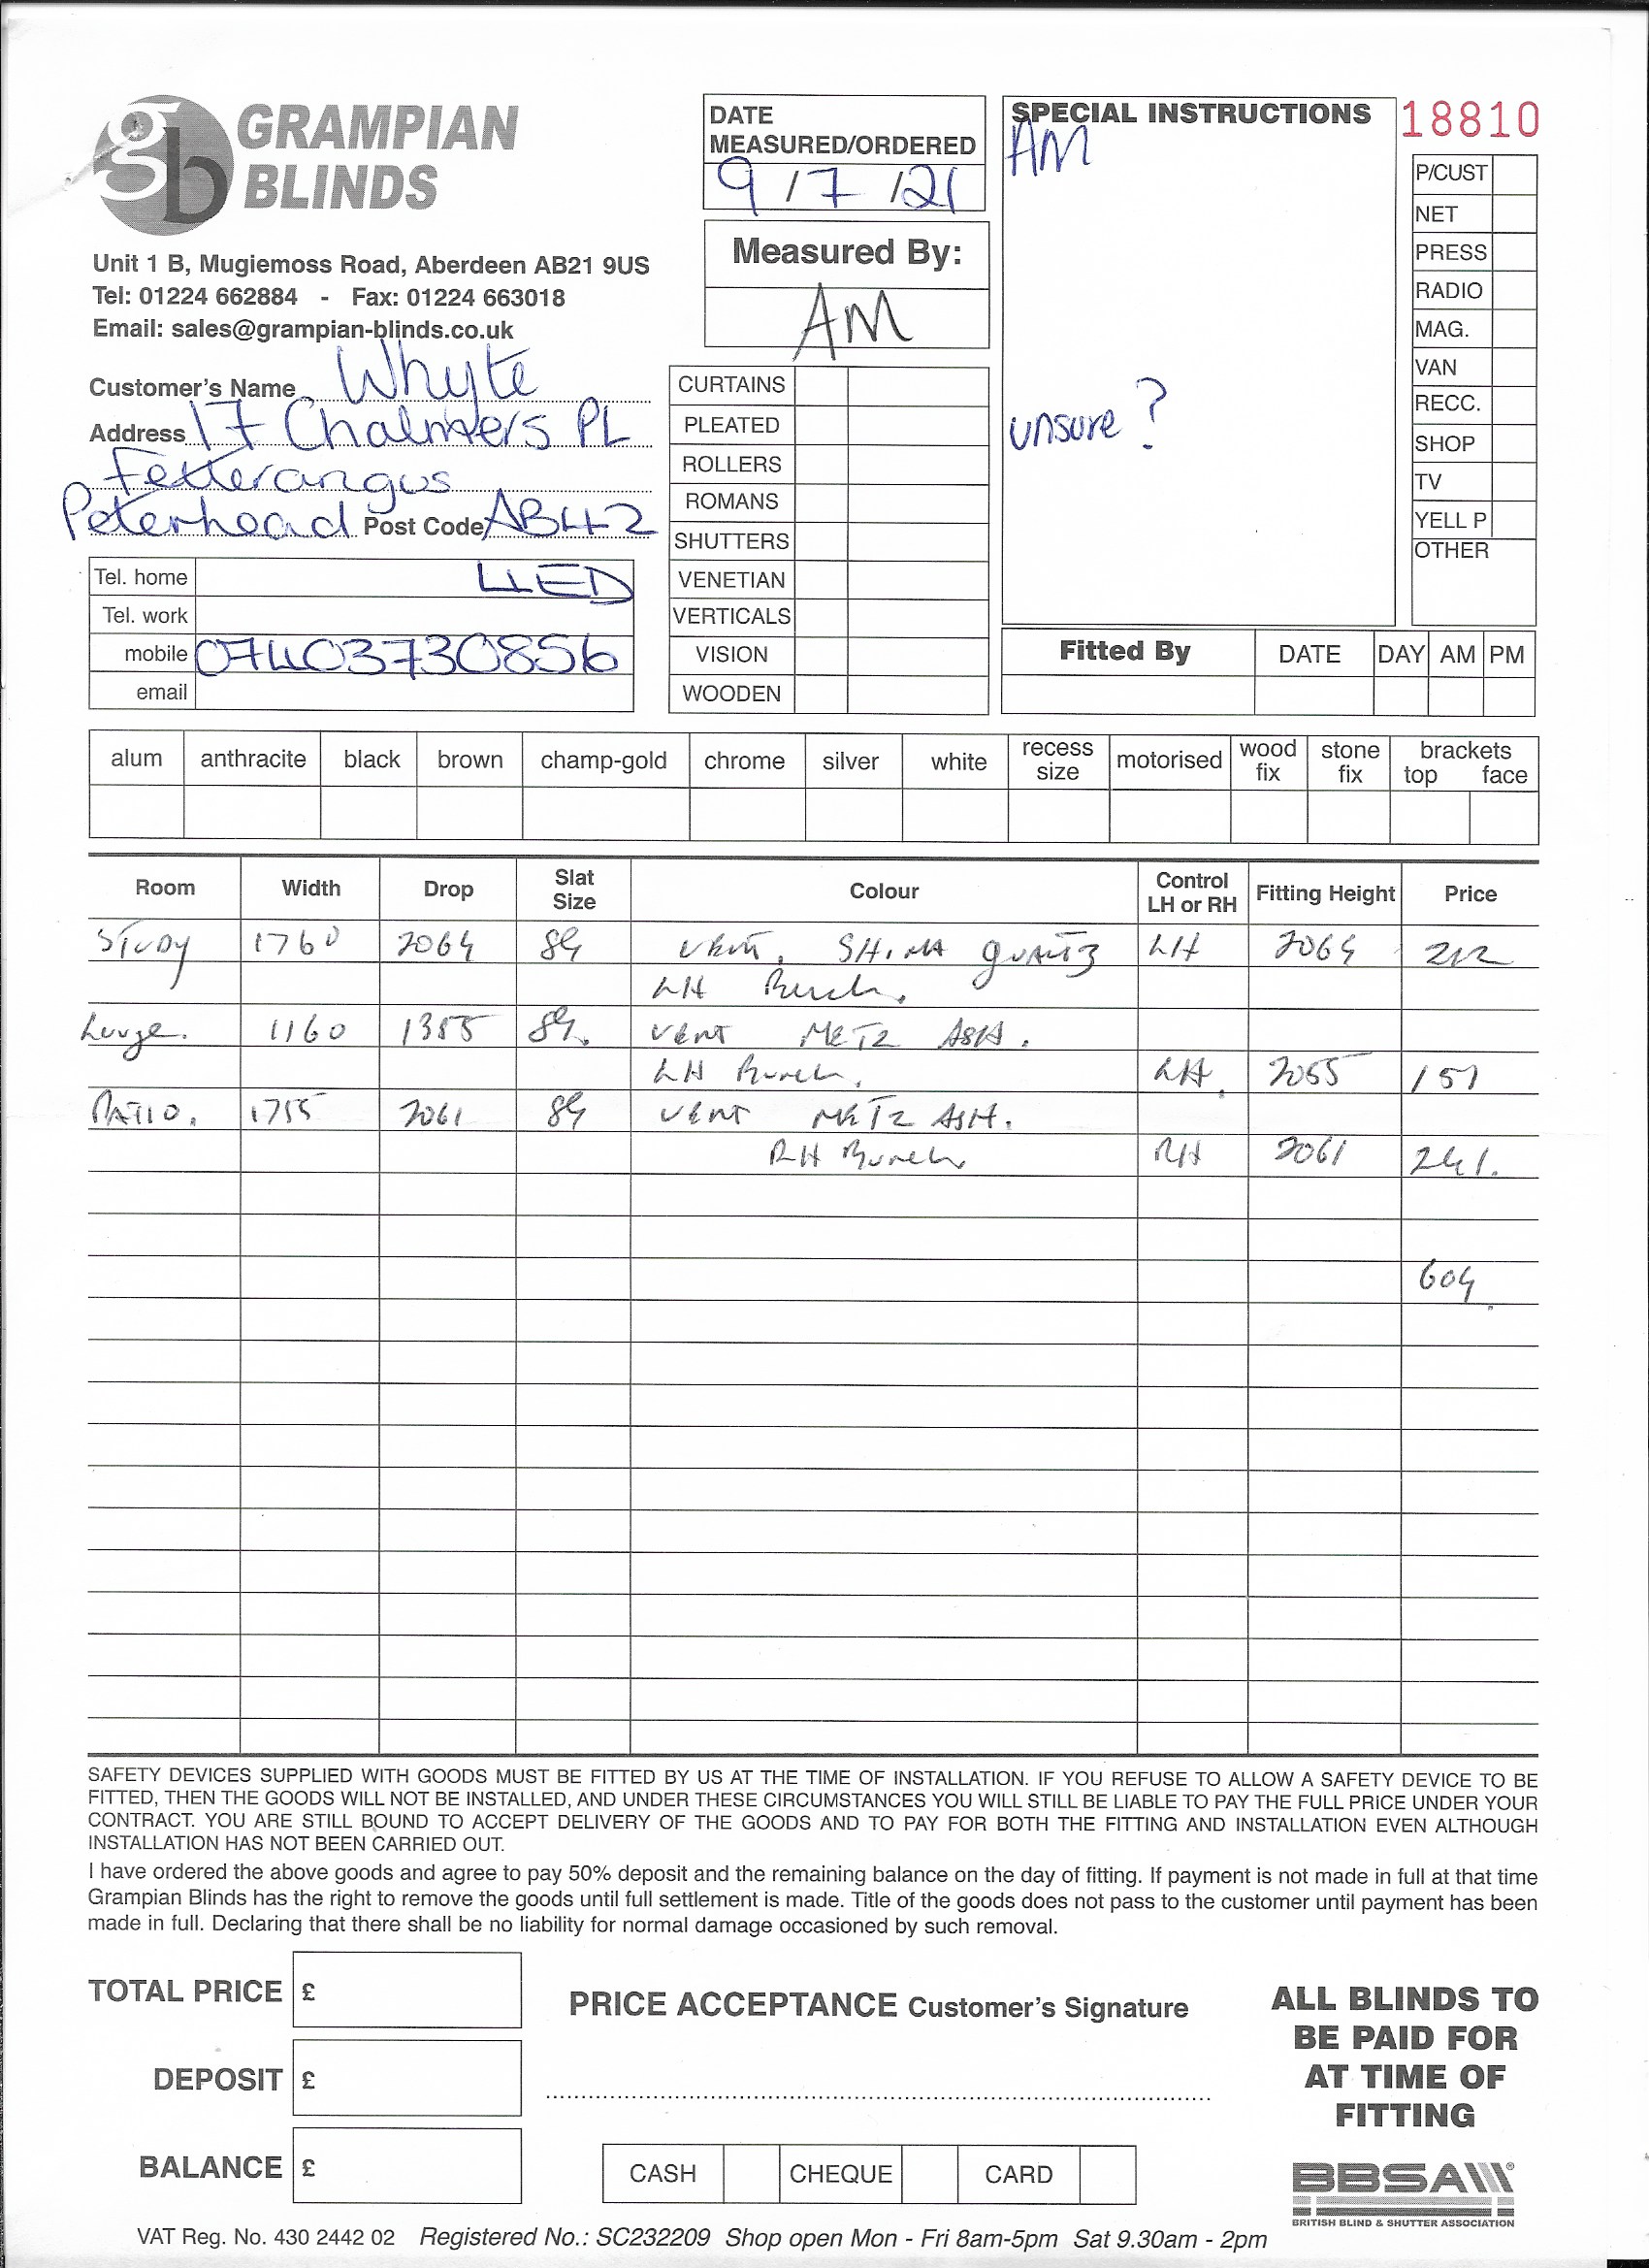 gb GRAMPIAN
BLINDS
Unit 1 B, Mugiemoss Road, Aberdeen AB21 9US
Tel: 01224 662884 - Fax: 01224 663018
Email: sales@grampian-blinds.co.uk
Customer's Name Whyte
Address 17 Chalmers PL
Fetterangus
Peterhead Post Code AB42
Tel. home 4ED
Tel. work
mobile 07403730856
email
DATE
MEASURED/ORDERED
9/7/21
Measured By:
AM
CURTAINS
PLEATED
ROLLERS
ROMANS
SHUTTERS
VENETIAN
VERTICALS
VISION
WOODEN
SPECIAL INSTRUCTIONS
AM
unsure?
18810
P/CUST
NET
PRESS
RADIO
MAG.
VAN
RECC.
SHOP
TV
YELL P
OTHER
Fitted By DATE DAY AM PM
alum anthracite black brown champ-gold chrome silver white recess size motorised wood fix stone fix brackets top face
Room Width Drop Slat Size Colour Control LH or RH Fitting Height Price
STUDY 1760 2064 89 VERT, SHIMA QUARTZ LH 2064 212
LH Bunch.
Lounge. 1160 1385 89. VERT METZ ASH.
LH Bunch. LH. 2055 151
PATIO. 1755 2061 89 VERT METZ ASH.
RH Bunch RH 2061 241.
604
SAFETY DEVICES SUPPLIED WITH GOODS MUST BE FITTED BY US AT THE TIME OF INSTALLATION. IF YOU REFUSE TO ALLOW A SAFETY DEVICE TO BE
FITTED, THEN THE GOODS WILL NOT BE INSTALLED, AND UNDER THESE CIRCUMSTANCES YOU WILL STILL BE LIABLE TO PAY THE FULL PRICE UNDER YOUR
CONTRACT. YOU ARE STILL BOUND TO ACCEPT DELIVERY OF THE GOODS AND TO PAY FOR BOTH THE FITTING AND INSTALLATION EVEN ALTHOUGH
INSTALLATION HAS NOT BEEN CARRIED OUT.
I have ordered the above goods and agree to pay 50% deposit and the remaining balance on the day of fitting. If payment is not made in full at that time
Grampian Blinds has the right to remove the goods until full settlement is made. Title of the goods does not pass to the customer until payment has been
made in full. Declaring that there shall be no liability for normal damage occasioned by such removal.
TOTAL PRICE £
DEPOSIT £
BALANCE £
PRICE ACCEPTANCE Customer's Signature
CASH CHEQUE CARD
ALL BLINDS TO
BE PAID FOR
AT TIME OF
FITTING
BBSA
BRITISH BLIND & SHUTTER ASSOCIATION
VAT Reg. No. 430 2442 02 Registered No.: SC232209 Shop open Mon - Fri 8am-5pm Sat 9.30am - 2pm